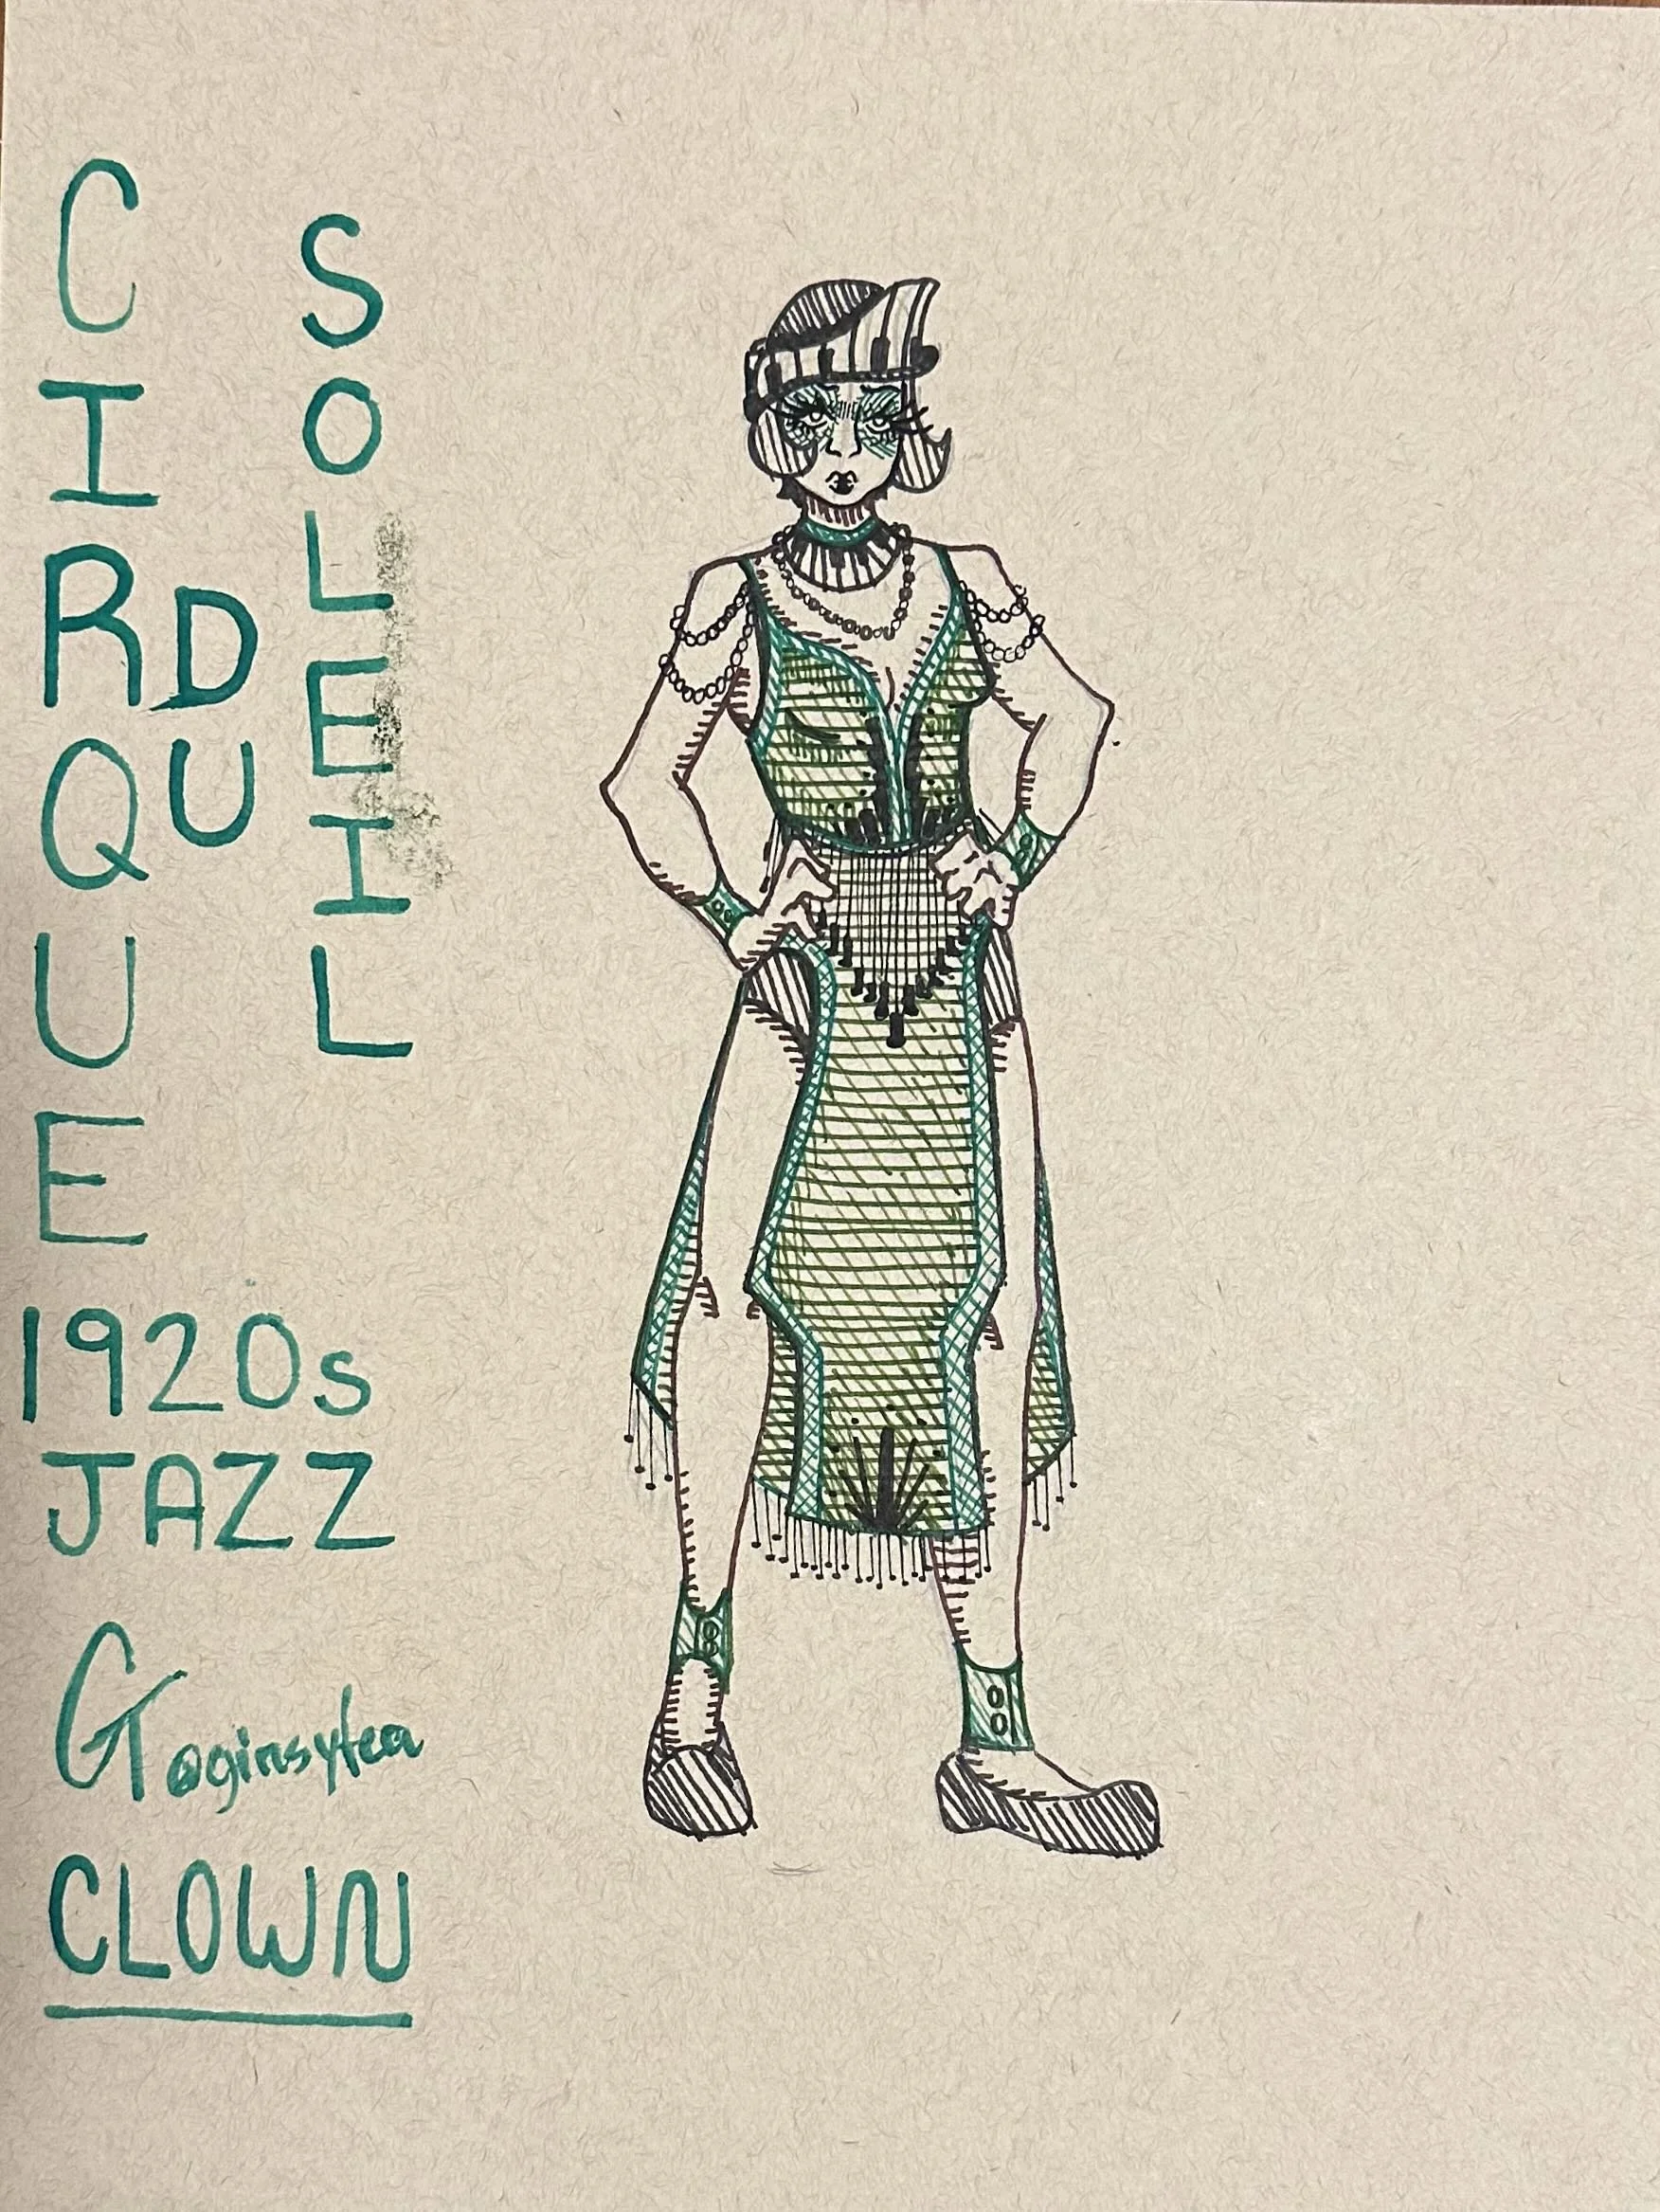 CIRQUE
DU
SOLEIL
1920s
JAZZ
G @ginsytea
CLOWN